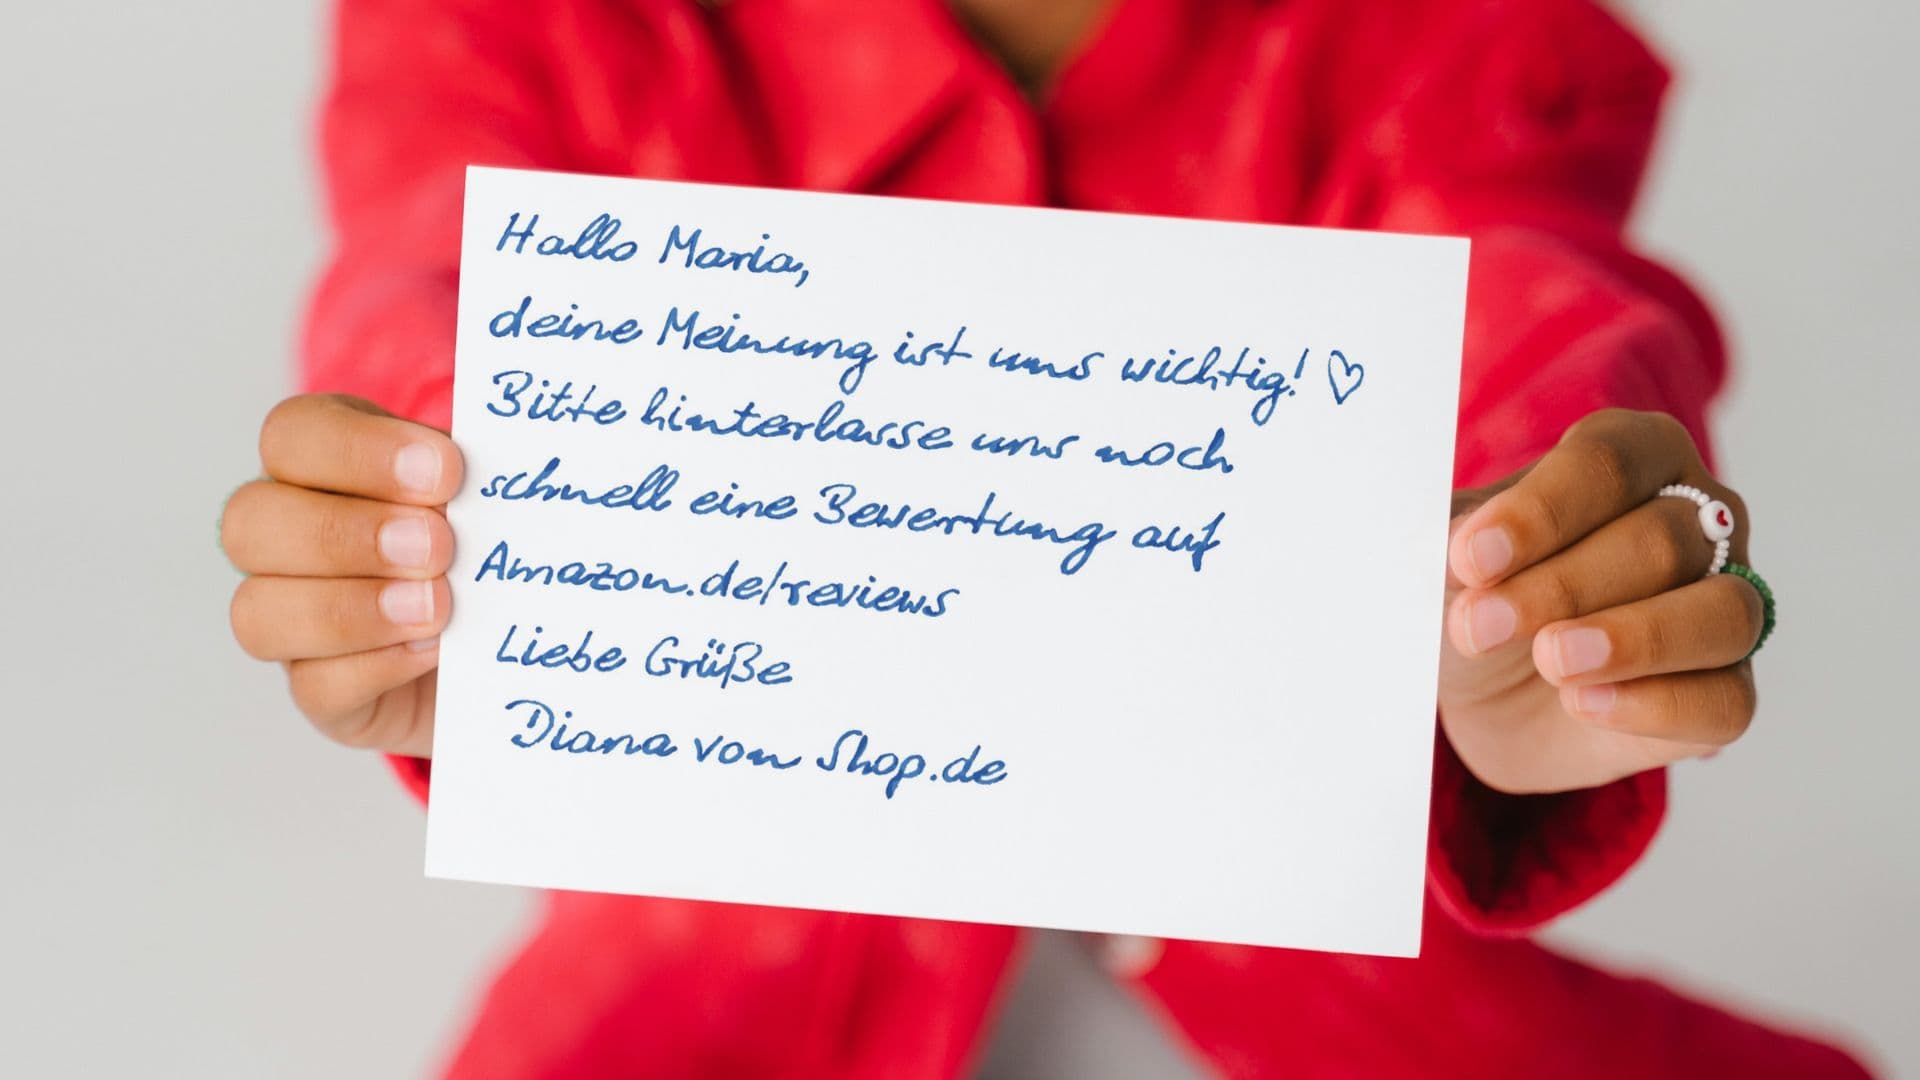 Hallo Maria,
deine Meinung ist uns wichtig! ♡
Bitte hinterlasse uns noch
schnell eine Bewertung auf
Amazon.de/reviews
Liebe Grüße
Diana von Shop.de